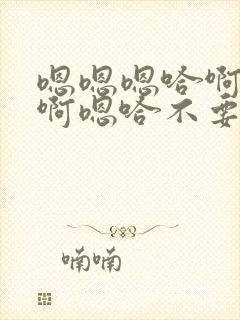 嗯嗯嗯哈啊
啊嗯哈不要
喃喃